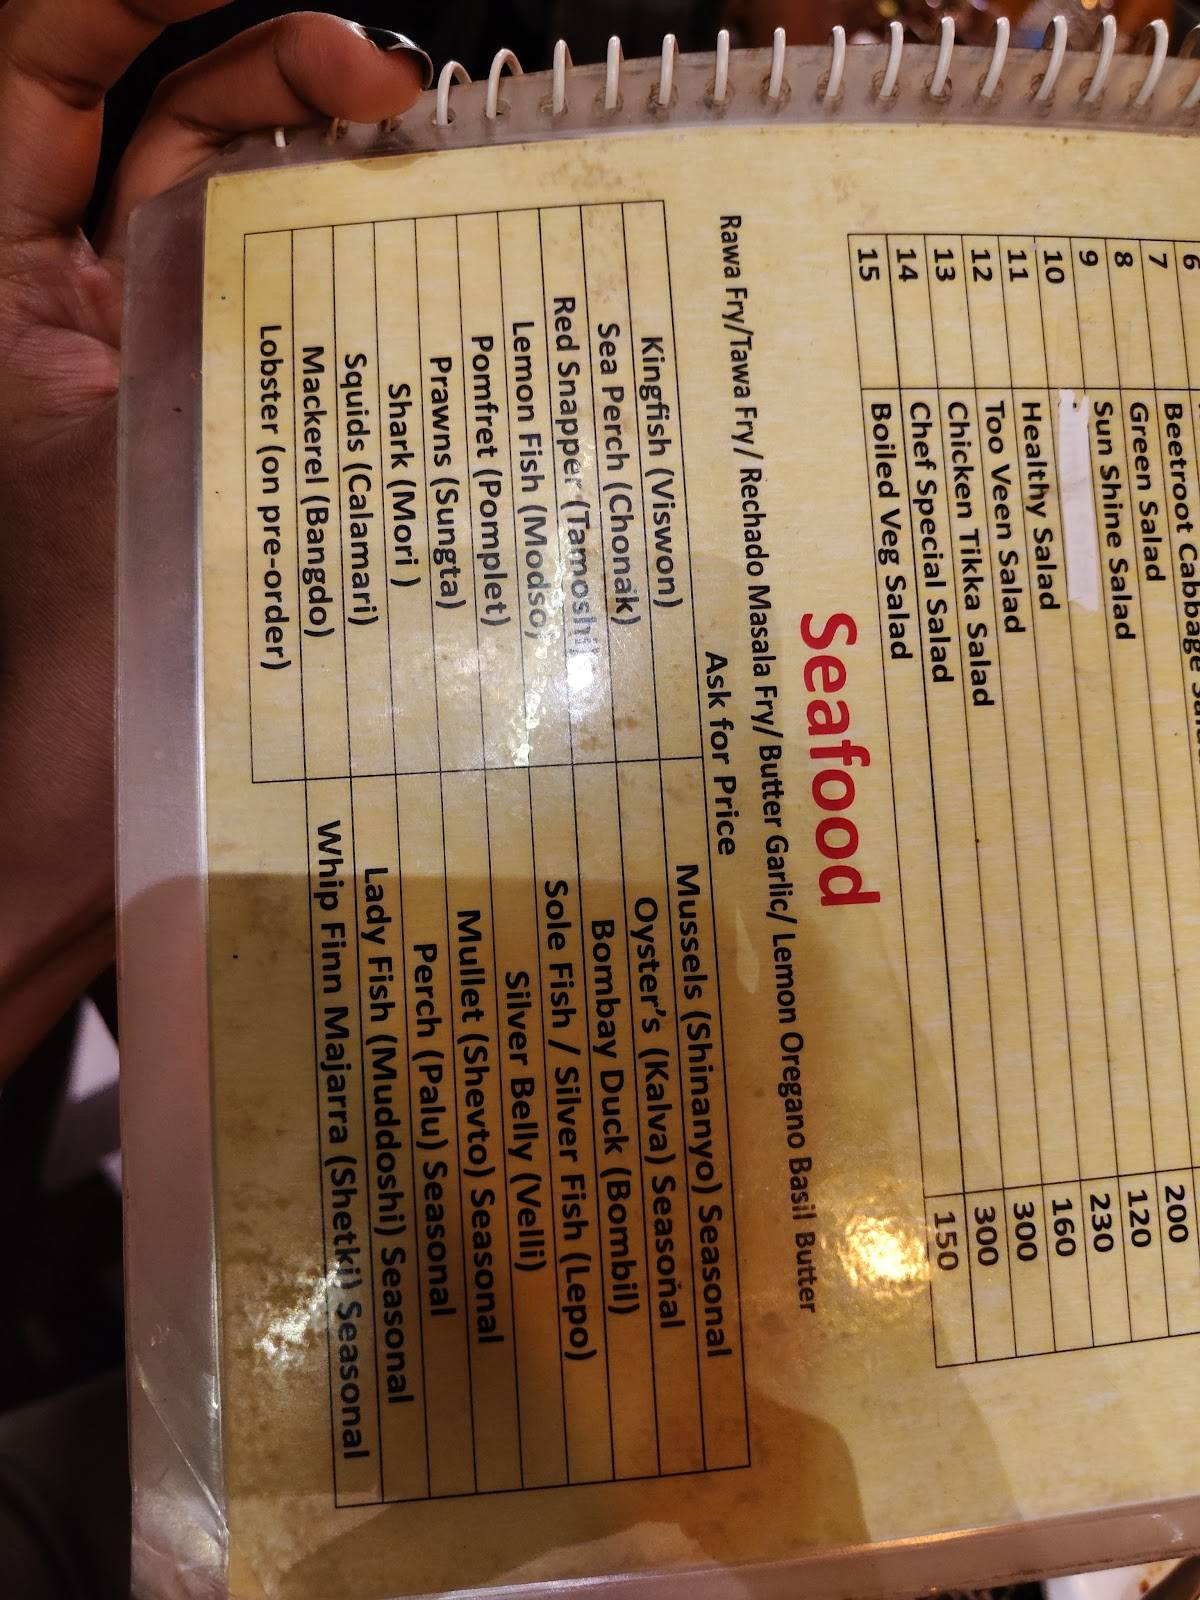 6
7 Beetroot Cabbage
8 Green Salad
9 Sun Shine Salad 200
10 120
11 Healthy Salad 230
12 Too Veen Salad 160
13 Chicken Tikka Salad 300
14 Chef Special Salad 300
15 Boiled Veg Salad 150
Seafood
Rawa Fry/Tawa Fry/ Rechado Masala Fry/ Butter Garlic/ Lemon Oregano Basil Butter
Ask for Price
Kingfish (Viswon) Mussels (Shinanyo) Seasonal
Sea Perch (Chonak) Oyster's (Kalva) Seasonal
Red Snapper (Tamoshi) Bombay Duck (Bombil)
Lemon Fish (Modso) Sole Fish / Silver Fish (Lepo)
Pomfret (Pomplet) Silver Belly (Velli)
Prawns (Sungta) Mullet (Shevto) Seasonal
Shark (Mori ) Perch (Palu) Seasonal
Squids (Calamari) Lady Fish (Muddoshi) Seasonal
Mackerel (Bangdo) Whip Finn Majarra (Shetki) Seasonal
Lobster (on pre-order)